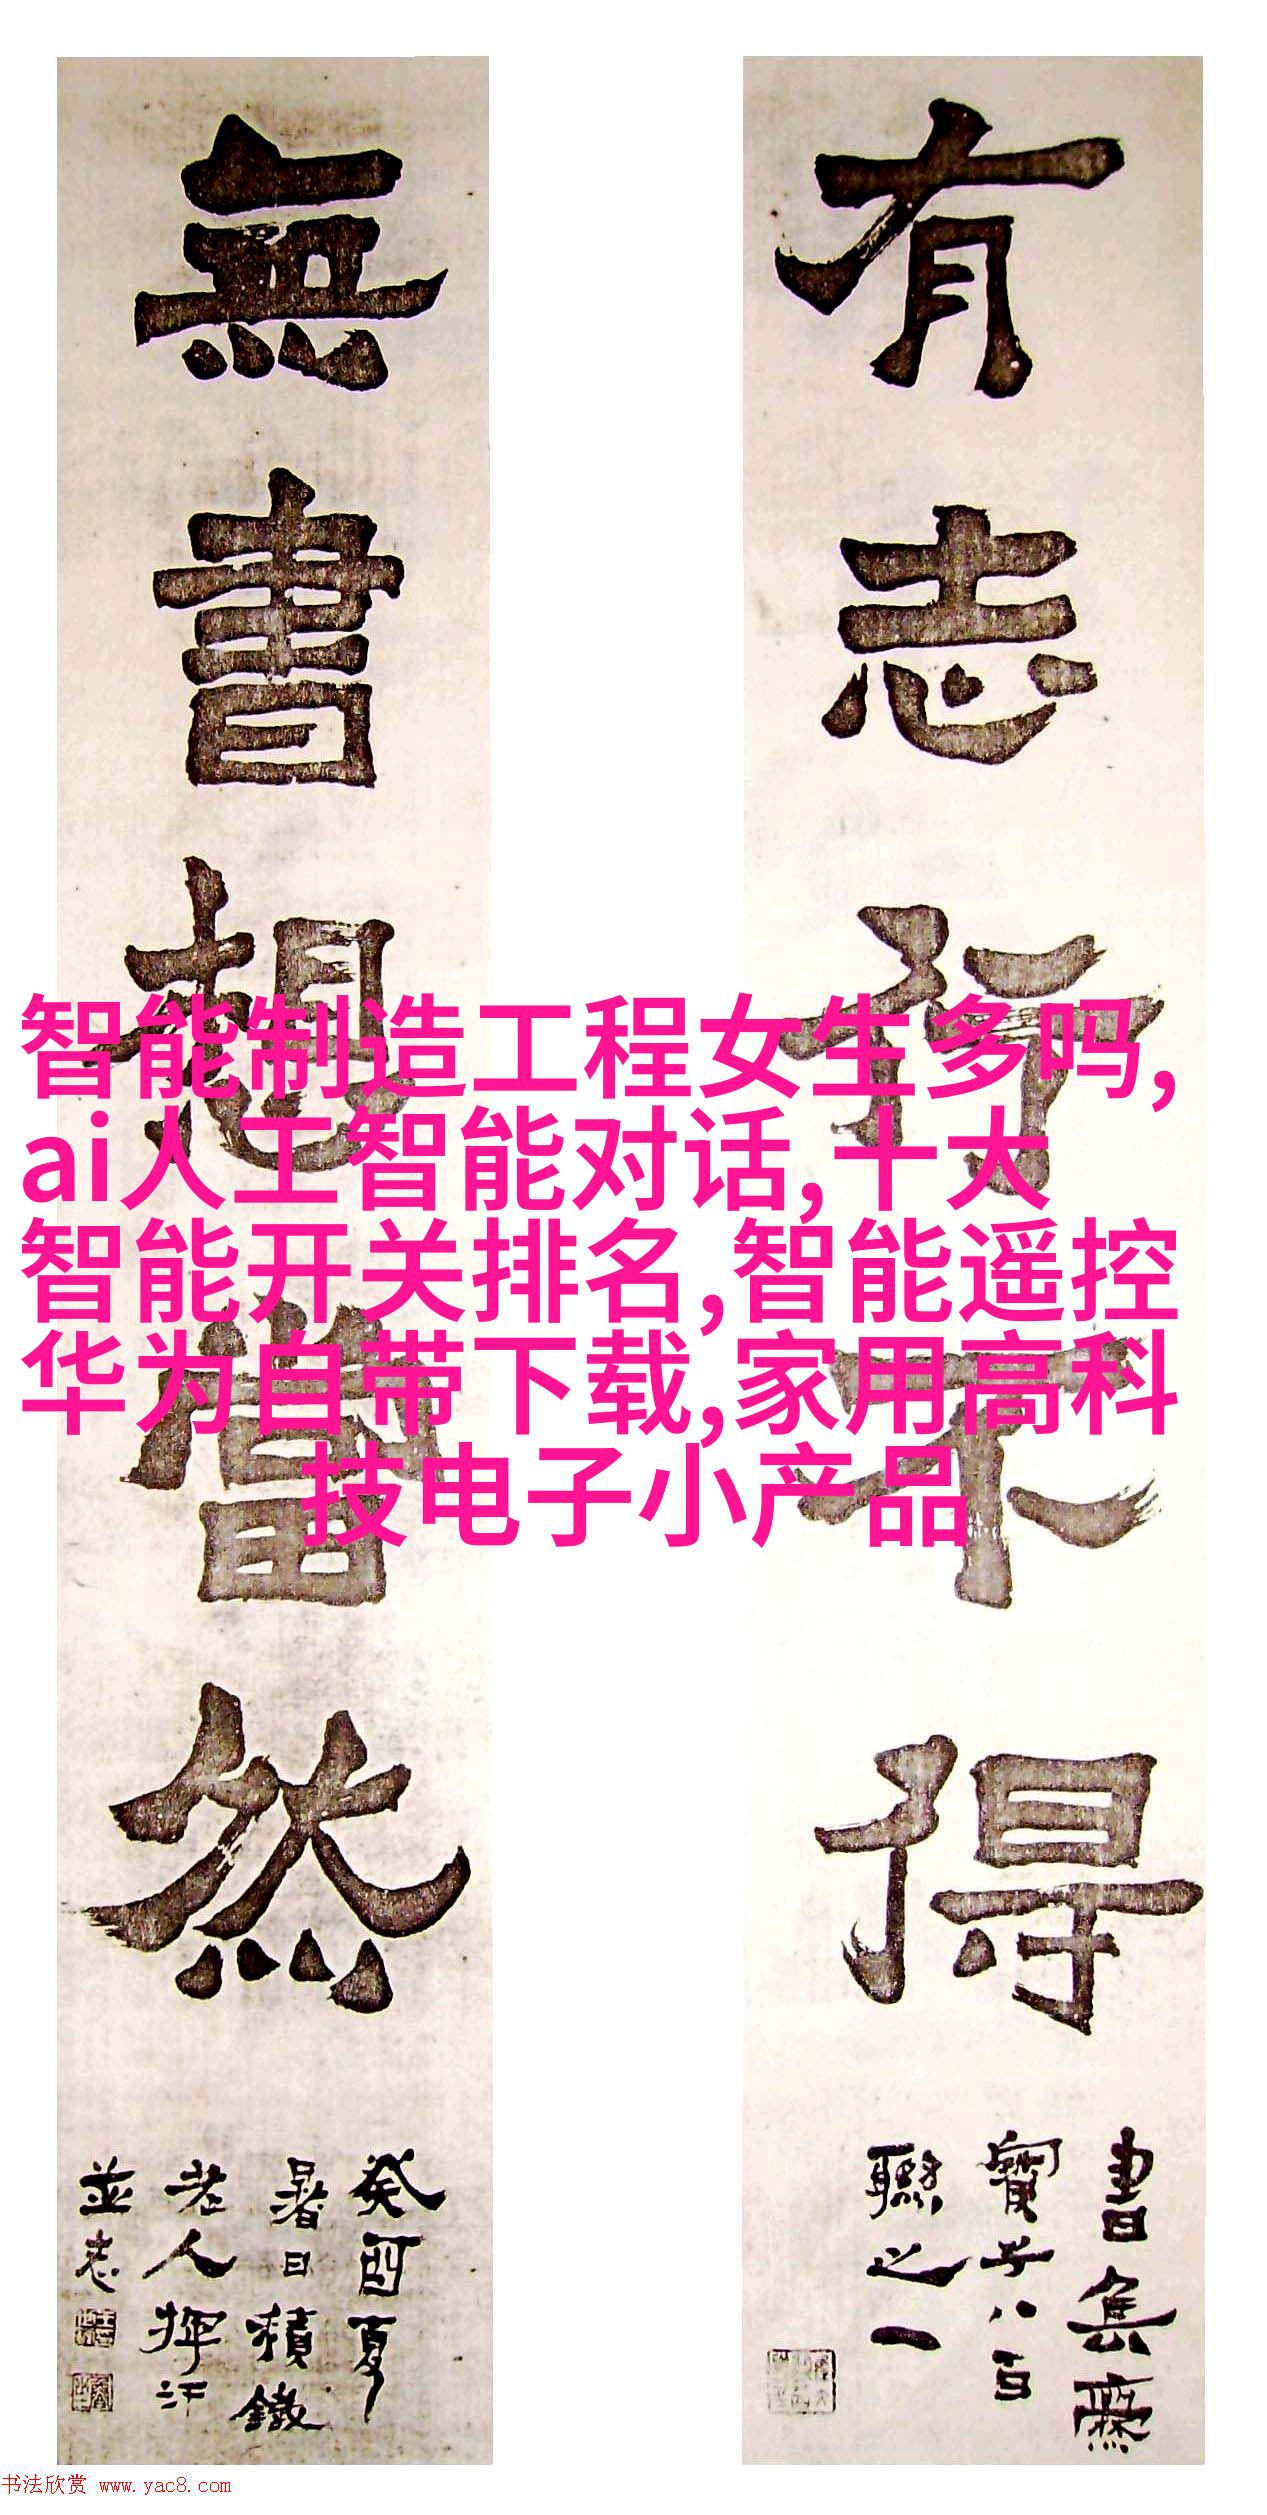 有志行不得
書集爨
寶子八百
聯之一
無書想當然
癸酉夏
暑日積鐵
老人揮汗
並志
智能制造工程女生多吗,
ai人工智能对话,十大
智能开关排名,智能遥控
华为自带下载,家用高科
技电子小产品
书法欣赏 www.yac8.com